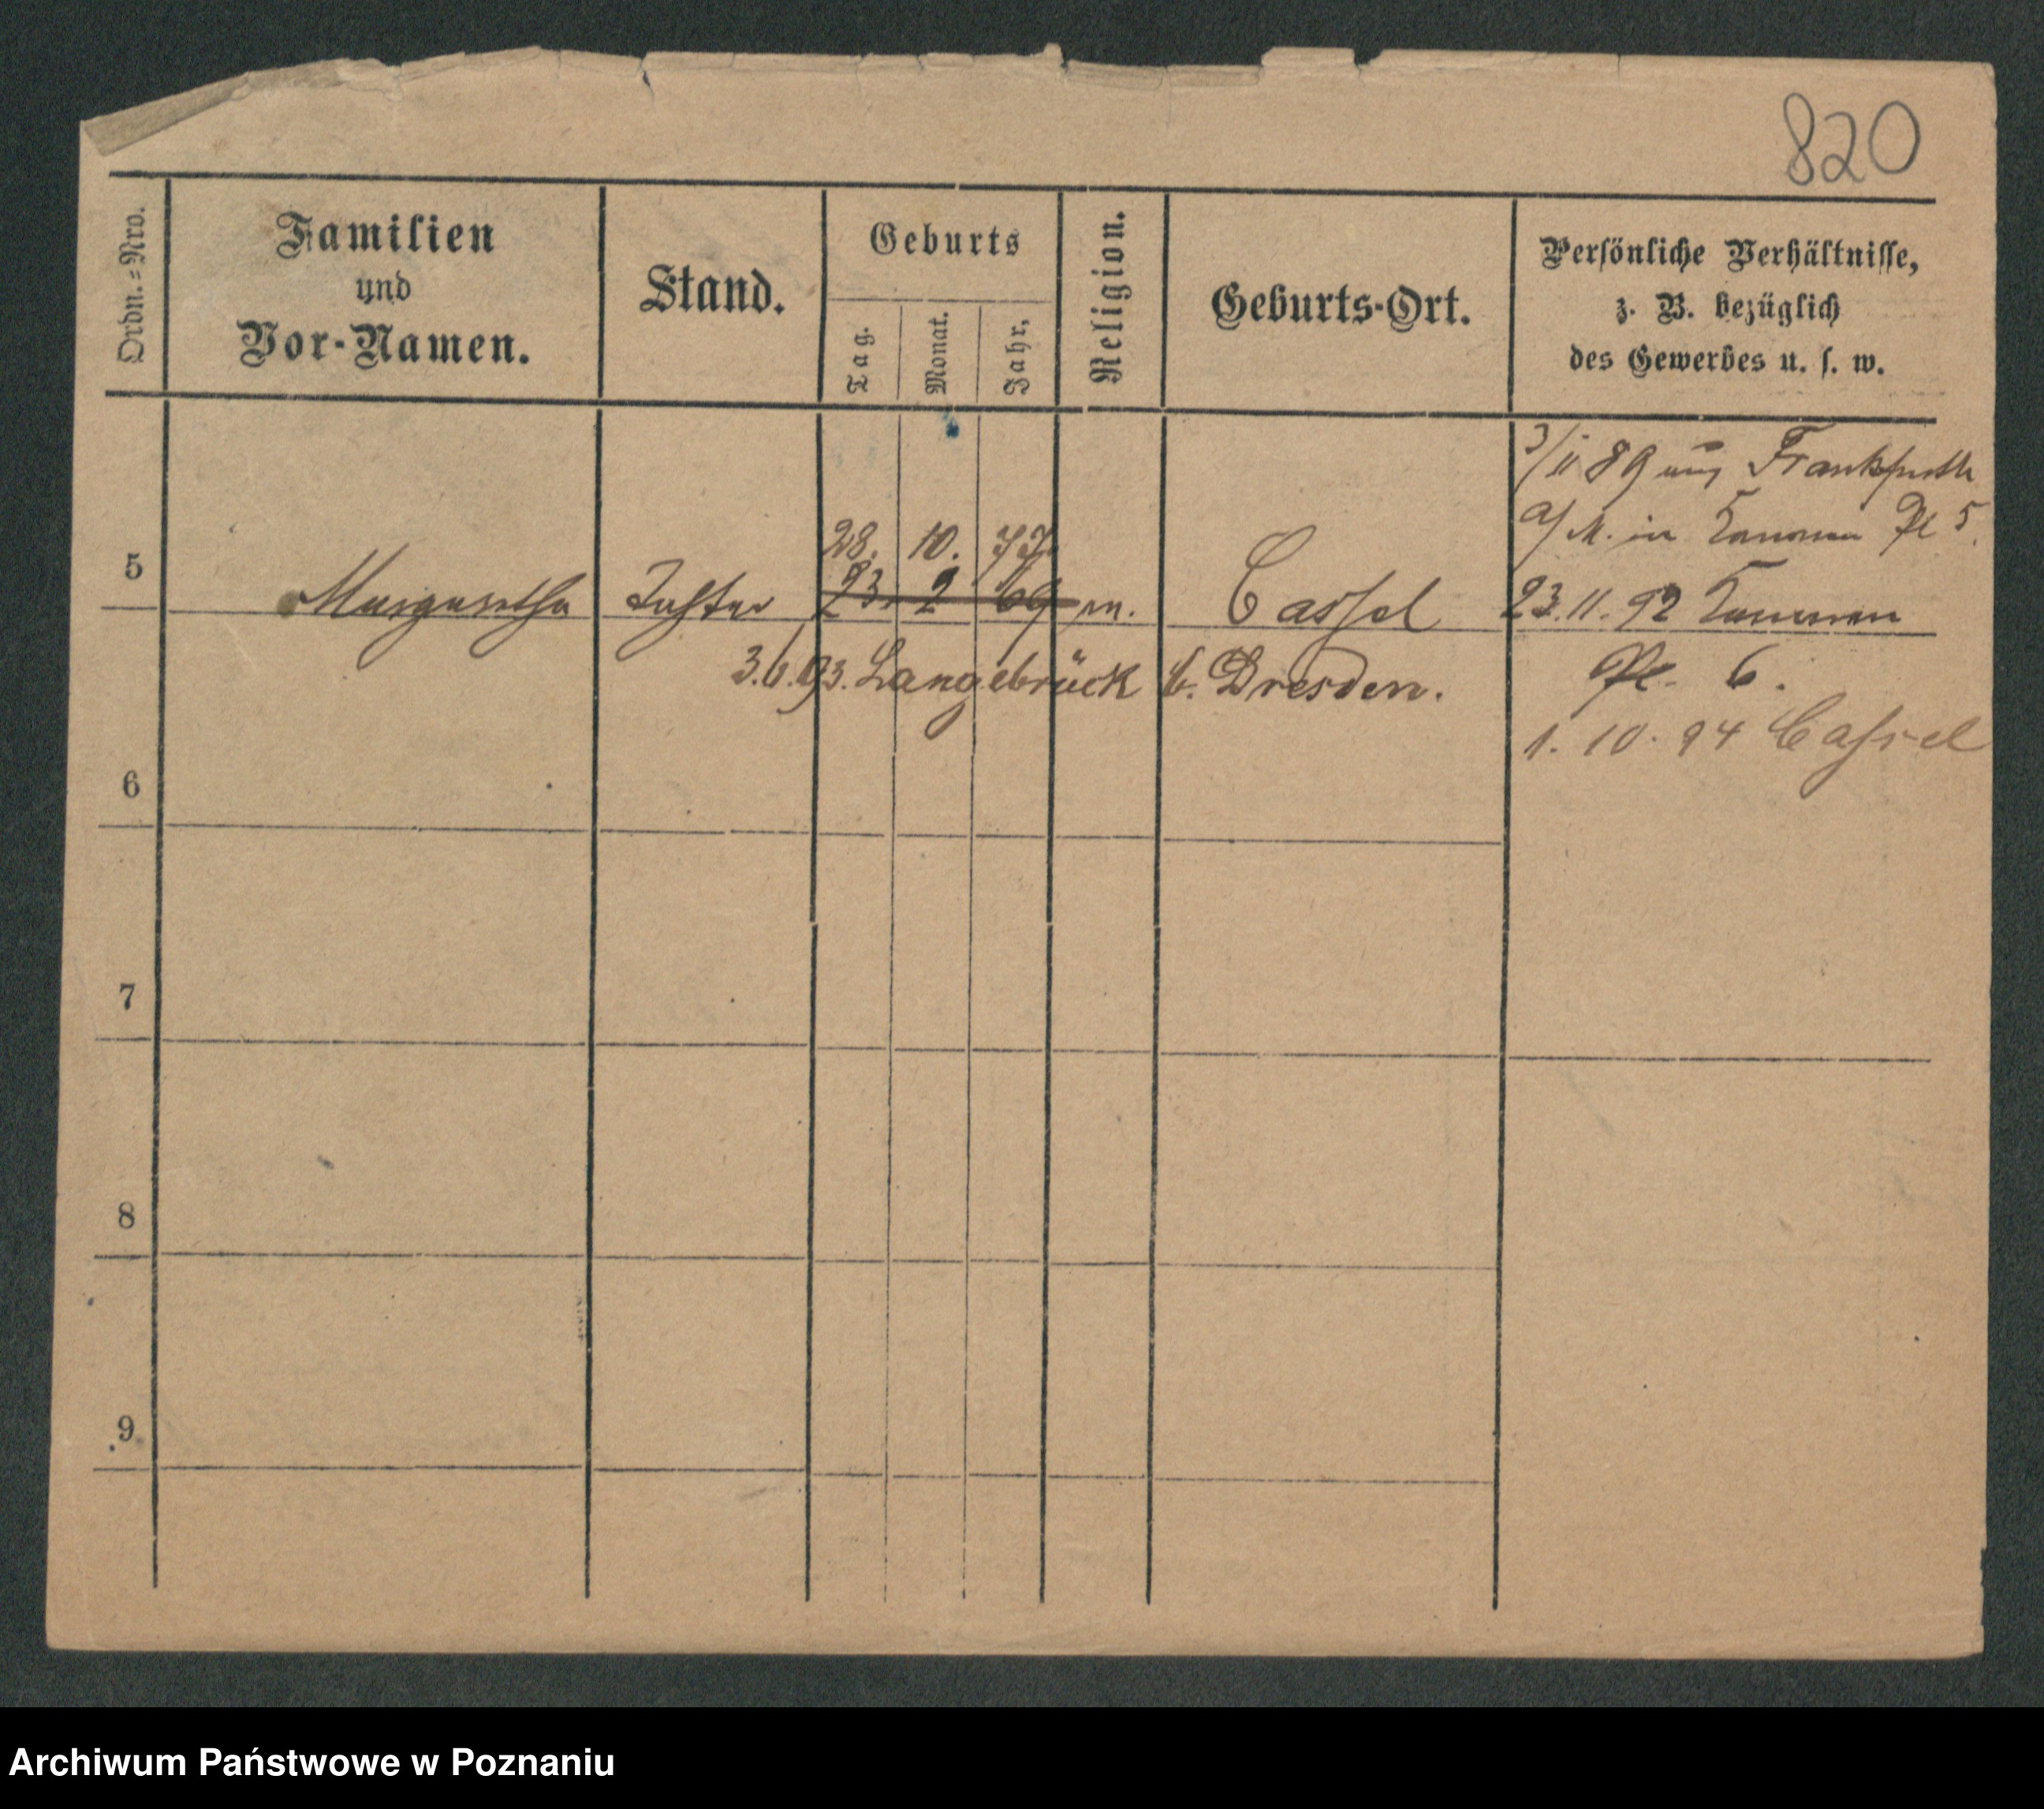 820
Ordn.=Nro.
Familien
und
Vor-Namen.
Stand.
Geburts
Tag.
Monat.
Jahr.
Religion.
Geburts-Ort.
Persönliche Verhältnisse,
z. B. bezüglich
des Gewerbes u. s. w.
3/11 89 aus Frankfurth
a/M. in Pl 5.
28. 10. 77.
5 Margaretha Tochter 23. 2 69 Cassel 23.11.92
3.6.93. Langebrück b. Dresden.
Pl. 6.
1. 10. 94 Cassel
6
7
8
9
Archiwum Państwowe w Poznaniu